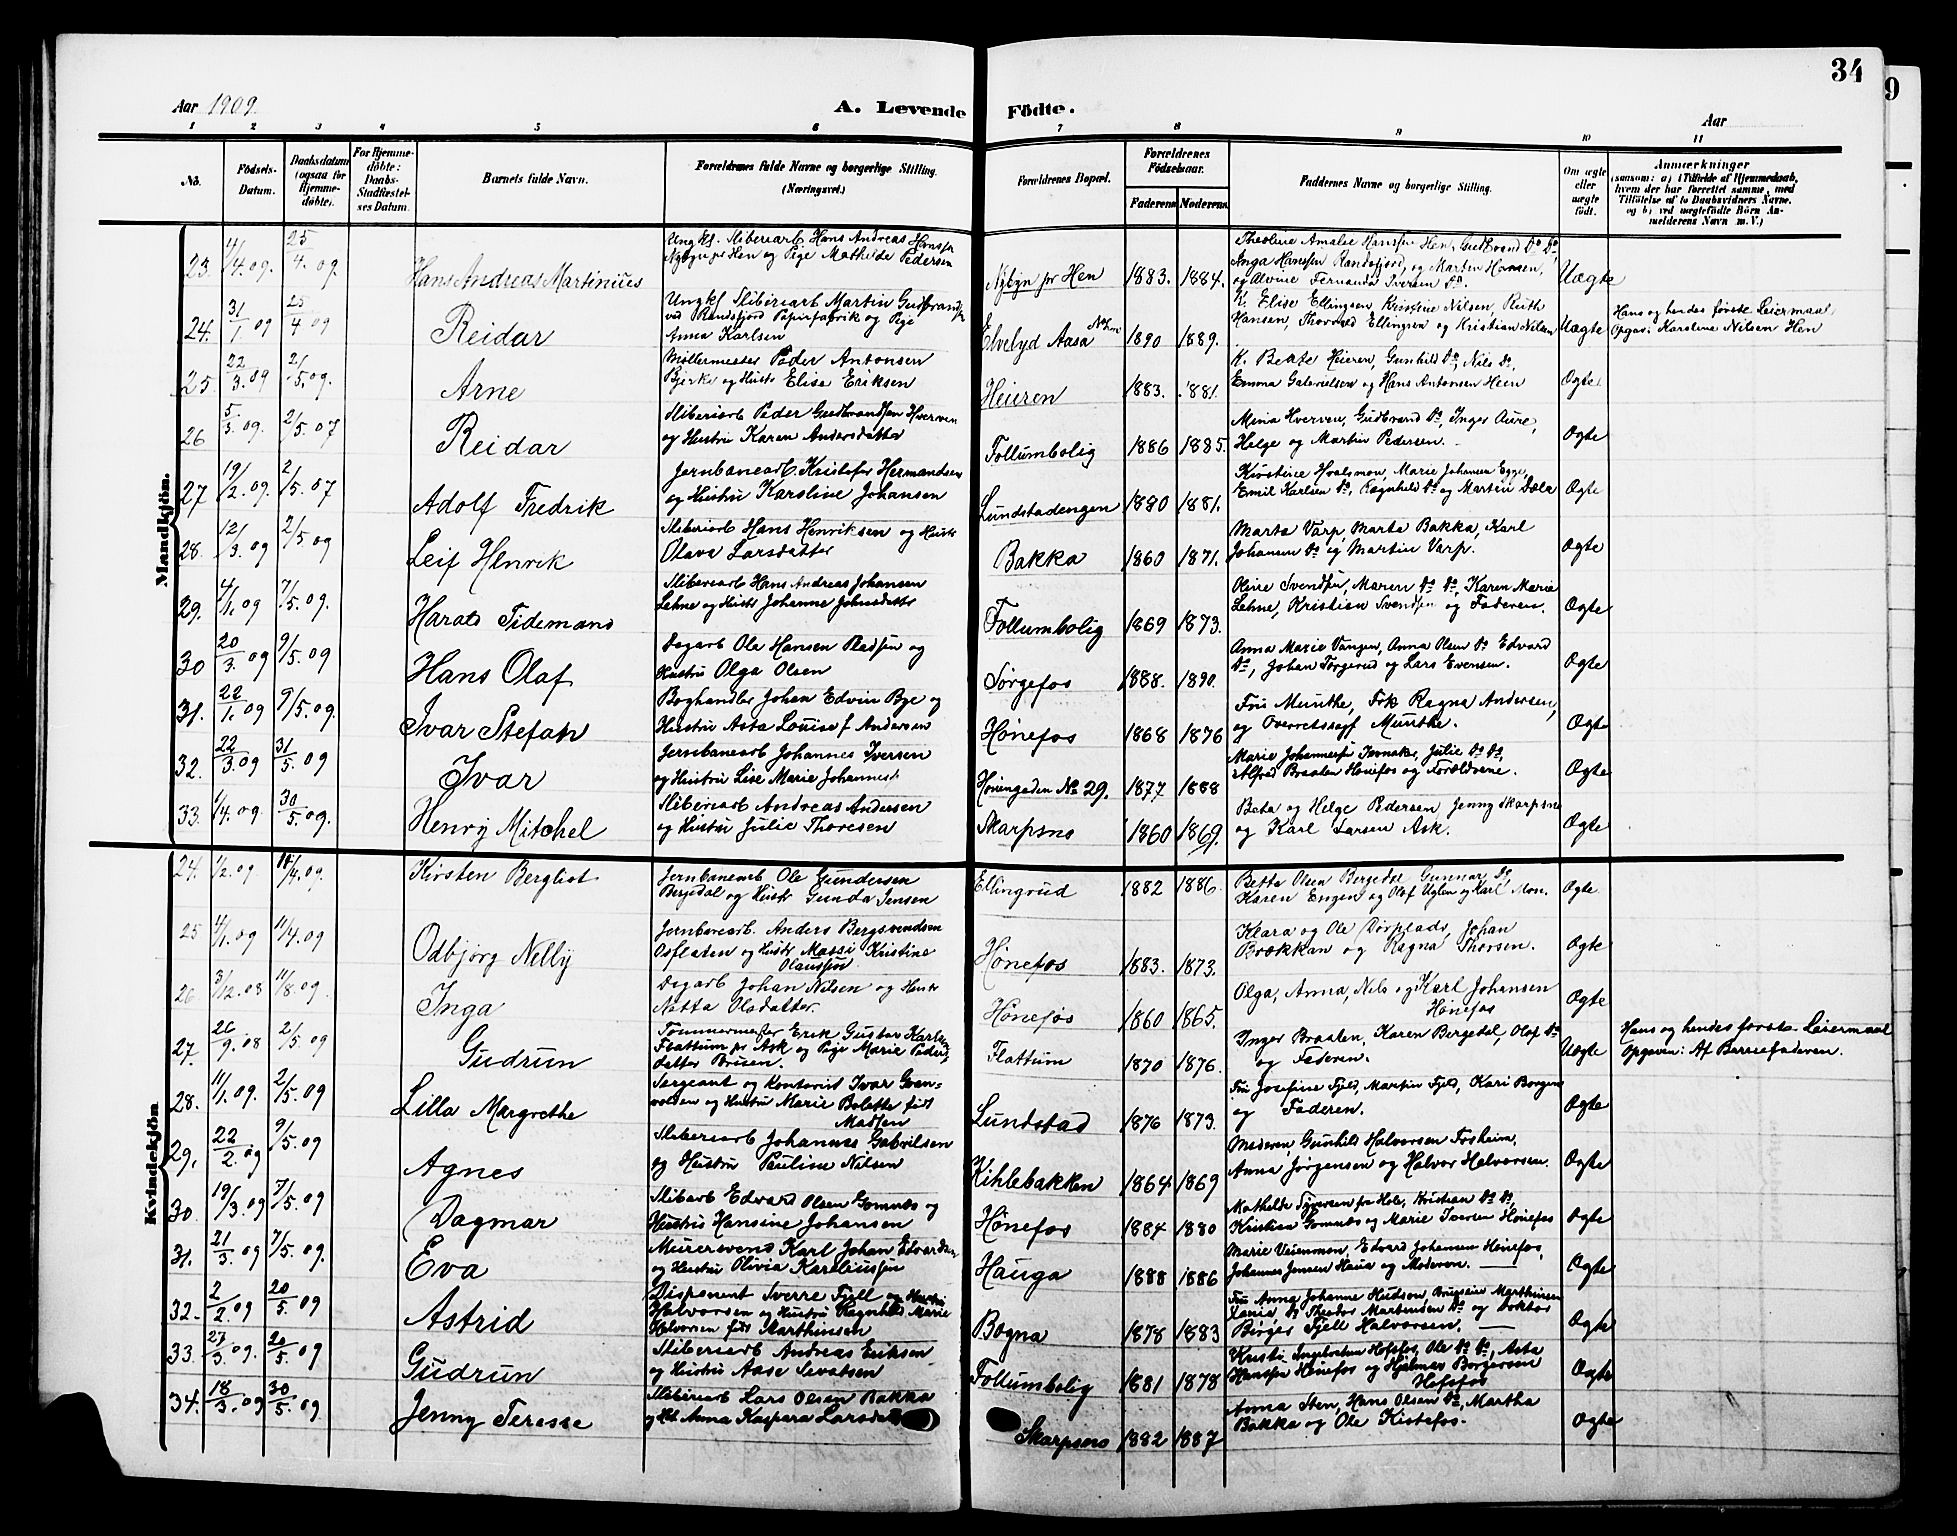 34
9
Aar 1909.
A. Levende Födte.
Aar
1 2 3 4 5 6 7 8 9 10 11
No.
Födsels-Datum.
Daabsdatum (ogsaa for Hjemme-döbte).
For Hjemme-döbte: Daabs-Stadfæstel-ses Datum.
Barnets fulde Navn.
Forældrenes fulde Navne og borgerlige Stilling. (Næringsvei.)
Forældrenes Bopæl.
Forældrenes Födselsaar.
Faderens Moderens
Faddernes Navne og borgerlige Stilling.
Om ægte eller uægte födt.
Anmærkninger
(saasom: a) i Tilfælde af Hjemmedaab, hvem der har forrettet samme, med Tilföielse af to Daabsvidners Navne, og b) ved uægtefödte Börn An-melderens Navn m. V.)
Mandkjön.
23. 4/4.09. 25/4.09. Hans Andreas Martinius
Ungkf. Sliberiarb Hans Andreas Hansen
Nybyn pr Hen og Pige Mathilde Pedersen
Nybyn pr Hen 1883. 1884.
Theoline Amalie Hansen Hen, Gudbrand Do Do,
Anga Hanssen Randsfjord, og Martin Hansen,
og Alvine Fernanda Iversen Do.
Uægte
24. 31/1 09 25/4 09 Reidar
Ungkf Sliberiarb Martin Gudbrandsen
ved Randsfjord Papirfabrik og Pige
Anna Karlsen
Elvelyd Aasa 1890 1889.
K. Elise Ellingsen, Kristine Nilsen, Ruth
Hansen, Thorvald Ellingsen og Kristian Nilsen
Uægte
Hans og hendes første Leiermaal
Opgas: Karoline Nilsen Hen
25. 22/3.09 2/5.09. Arne
Møllermester Peder Antonsen
Bjerke og Hustr Elise Eriksen
Heieren 1883. 1881.
K. Beate Heieren, Gunhild Do, Nils Do,
Emma Gabrielsen og Hans Antonsen Heen
Ægte
26 5/3.09. 2/5.07 Reidar
Sliberiarb Peder Gudbrandsen Hverven
og Hustru Karen Andersdatter
Follumbolig 1886 1885.
Mina Hverven, Gudbrand Do Inger Aure,
Helge og Martin Pedersen.
Ægte
27 19/2.09. 2/5.07 Adolf Fredrik
Jernbanearb. Kristofer Hermandsen
og Hustru Karoline Johansen
Lundstadengen 1880 1881.
Kirstine Hvalsmon, Marie Johansen Egge,
Emil Karlsen Do, Ragnhild Do og Martin Dæla
Ægte
28. 12/3.09 2/5.09 Leif Henrik
Sliberiarb Hans Henriksen og Hustr
Olava Larsdatter
Bakka 1860 1871.
Marta Varp, Marta Bakka, Karl
Johansen Do og Martin Varp.
Ægte
29. 4/1.09 7/5.09. Harald Tidemand
Sliberiarb Hans Andreas Johansen
Lehne og Hustr Johanne Johnsdatter
Follumbolig 1869 1873.
Oline Svendsen, Maren Do Do, Karen Marie
Lehne, Kristian Svendsen og Faderen.
Ægte
30 20/3. 09 9/5.09 Hans Olaf
Dagarb Ole Hansen Pladsen og
Hustru Olga Olsen
Sørgefos 1888. 1890.
Anna Marie Vangen, Anna Olsen Do Edvard
Do, Johan Torgerud og Lars Evensen.
Ægte
31. 22/1.09 9/5.09. Ivar Stefan
Boghandler Johan Edvin Bye og
Hustru Asta Louise f. Andersen
Hønefos 1868 1876
Fru Munthe, Frk Ragna Andersen,
og Overretssagf Munthe.
Ægte
32. 22/3.09 31/5.09 Ivar
Jernbanearb Johannes Iversen
og Hustru Lise Marie Johannes
Høiengaden No 29. 1877 1888
Marie Johannessen, Julie Do Do,
Alfred Braaten Hønefos og Forældrene.
Ægte
33. 1/4.09. 30/5.09. Henry Mitchel
Sliberiarb Andreas Andersen
og Hustru Julie Thoresen
Skarpsno 1860 1869.
Beta og Helge Pedersen Jenny Skarpsno
og Karl Larsen Ask.
Ægte
Kvindekjön
24. 1/2.09. 10/4.09. Kirsten Bergliot
Jernbanearb Ole Gundersen
Bergdal og Hustr Gunda Jensen
Ellingrud 1882 1886.
Betta Olsen Bergdal Gunnar Do,
Karen Engen og Olaf Uglen og Karl Mon.
Ægte
25 4/1.09 11/4.09 Odbjørg Nelly
Jernbanearb. Anders Bergsvendsen
Osfladen og Hustr Massi Kristine
Olaussen
Hønefos 1883. 1873.
Klara og Ole Dørplads, Johan
Brækkan og Ragna Thorsen.
Ægte
26. 3/12.08 11/8.09. Inga
Dagarb Johan Nilsen og Hustr
Netta Olsdatter.
Hønefos 1860 1865.
Olga, Anna, Nils og Karl Johansen
Hønefos
Ægte
27. 26/9.08 2/5.09 Gudrun
Tømmermester Erik Gustav Karlsen
Flattum pr Ask og Pige Marie Peders
datter Brusen.
Flattum 1870 1876.
Inger Braaten, Karen Bergdal, Olof Do
og Faderen.
Uægte
Hans og hendes første Leiermaal
Opgiven: Af Barnefaderen.
28. 11/1.09. 2/5.09 Lilla Margrethe
Sergeant og Kontorist Ivar Gven-
volden og Hustru Marie Bolette født
Madsen
Lundstad 1876 1873.
Fru Josefine Fjeld, Martin Fjeld, Kari Borgen
og Faderen.
Ægte
29. 22/2.09 9/5.09 Agnes
Sliberiarb Johannes Gabrilsen
og Hustru Pauline Nilsen
Kihlebakken 1864 1869
Moderen, Gunhild Halvorsen Fosheim,
Anna Jørgensen og Halvor Halvorsen.
Ægte
30. 19/3.09 7/5.09 Dagmar
Slibarb Edvard Olsen Somnæs og
Hustru Hansine Johansen
Hønefos 1884 1880
Mathilde Syversen pr Hole, Kristian Do Do,
Kristian Somnæs og Marie Iversen Hønefos
Ægte
31. 21/3.09 7/5.09. Eva
Murersvend Karl Johan Edvardsen
og Hustru Olivia Karelinssen
Hauga 1888 1886
Marie Veienmon, Edvard Johansen Hønefos,
Johannes Jensen Haua og Moderen.
Ægte
32. 2/2.09 20/5.09 Astrid
Disponent Sverre Fjell og Hustru
Halvorsen og Hustru Ragnhild Marie
Halvorsen født Marthinsen
Bogna 1878 1883
Fru Anna Johanne Hudson, Marthinsen
Do Theodor Martinsen Do og Doktor
Birger Fjell Halvorsen.
Ægte
33. 27/3.09. 20/5.09 Gudrun
Sliberiarb Andreas Eriksen
og Hustru Aase Sevatsen
Follumbolig 1881 1878
Kristi Ingebreten Hofsfos, Ole Do Do, Asta
Hansen Hønefos og Hjalmar Borgersen
Hofsfos
Ægte
34. 18/3.09 30/5.09. Jenny Teresse
Sliberiarb Lars Olsen Bakka
og Hst Anna Kaspara Larsdat
Skarpsno 1882 1887
Anna Sten, Hans Olsen Do, Martha
Bakka og Ole Kistefos.
Ægte